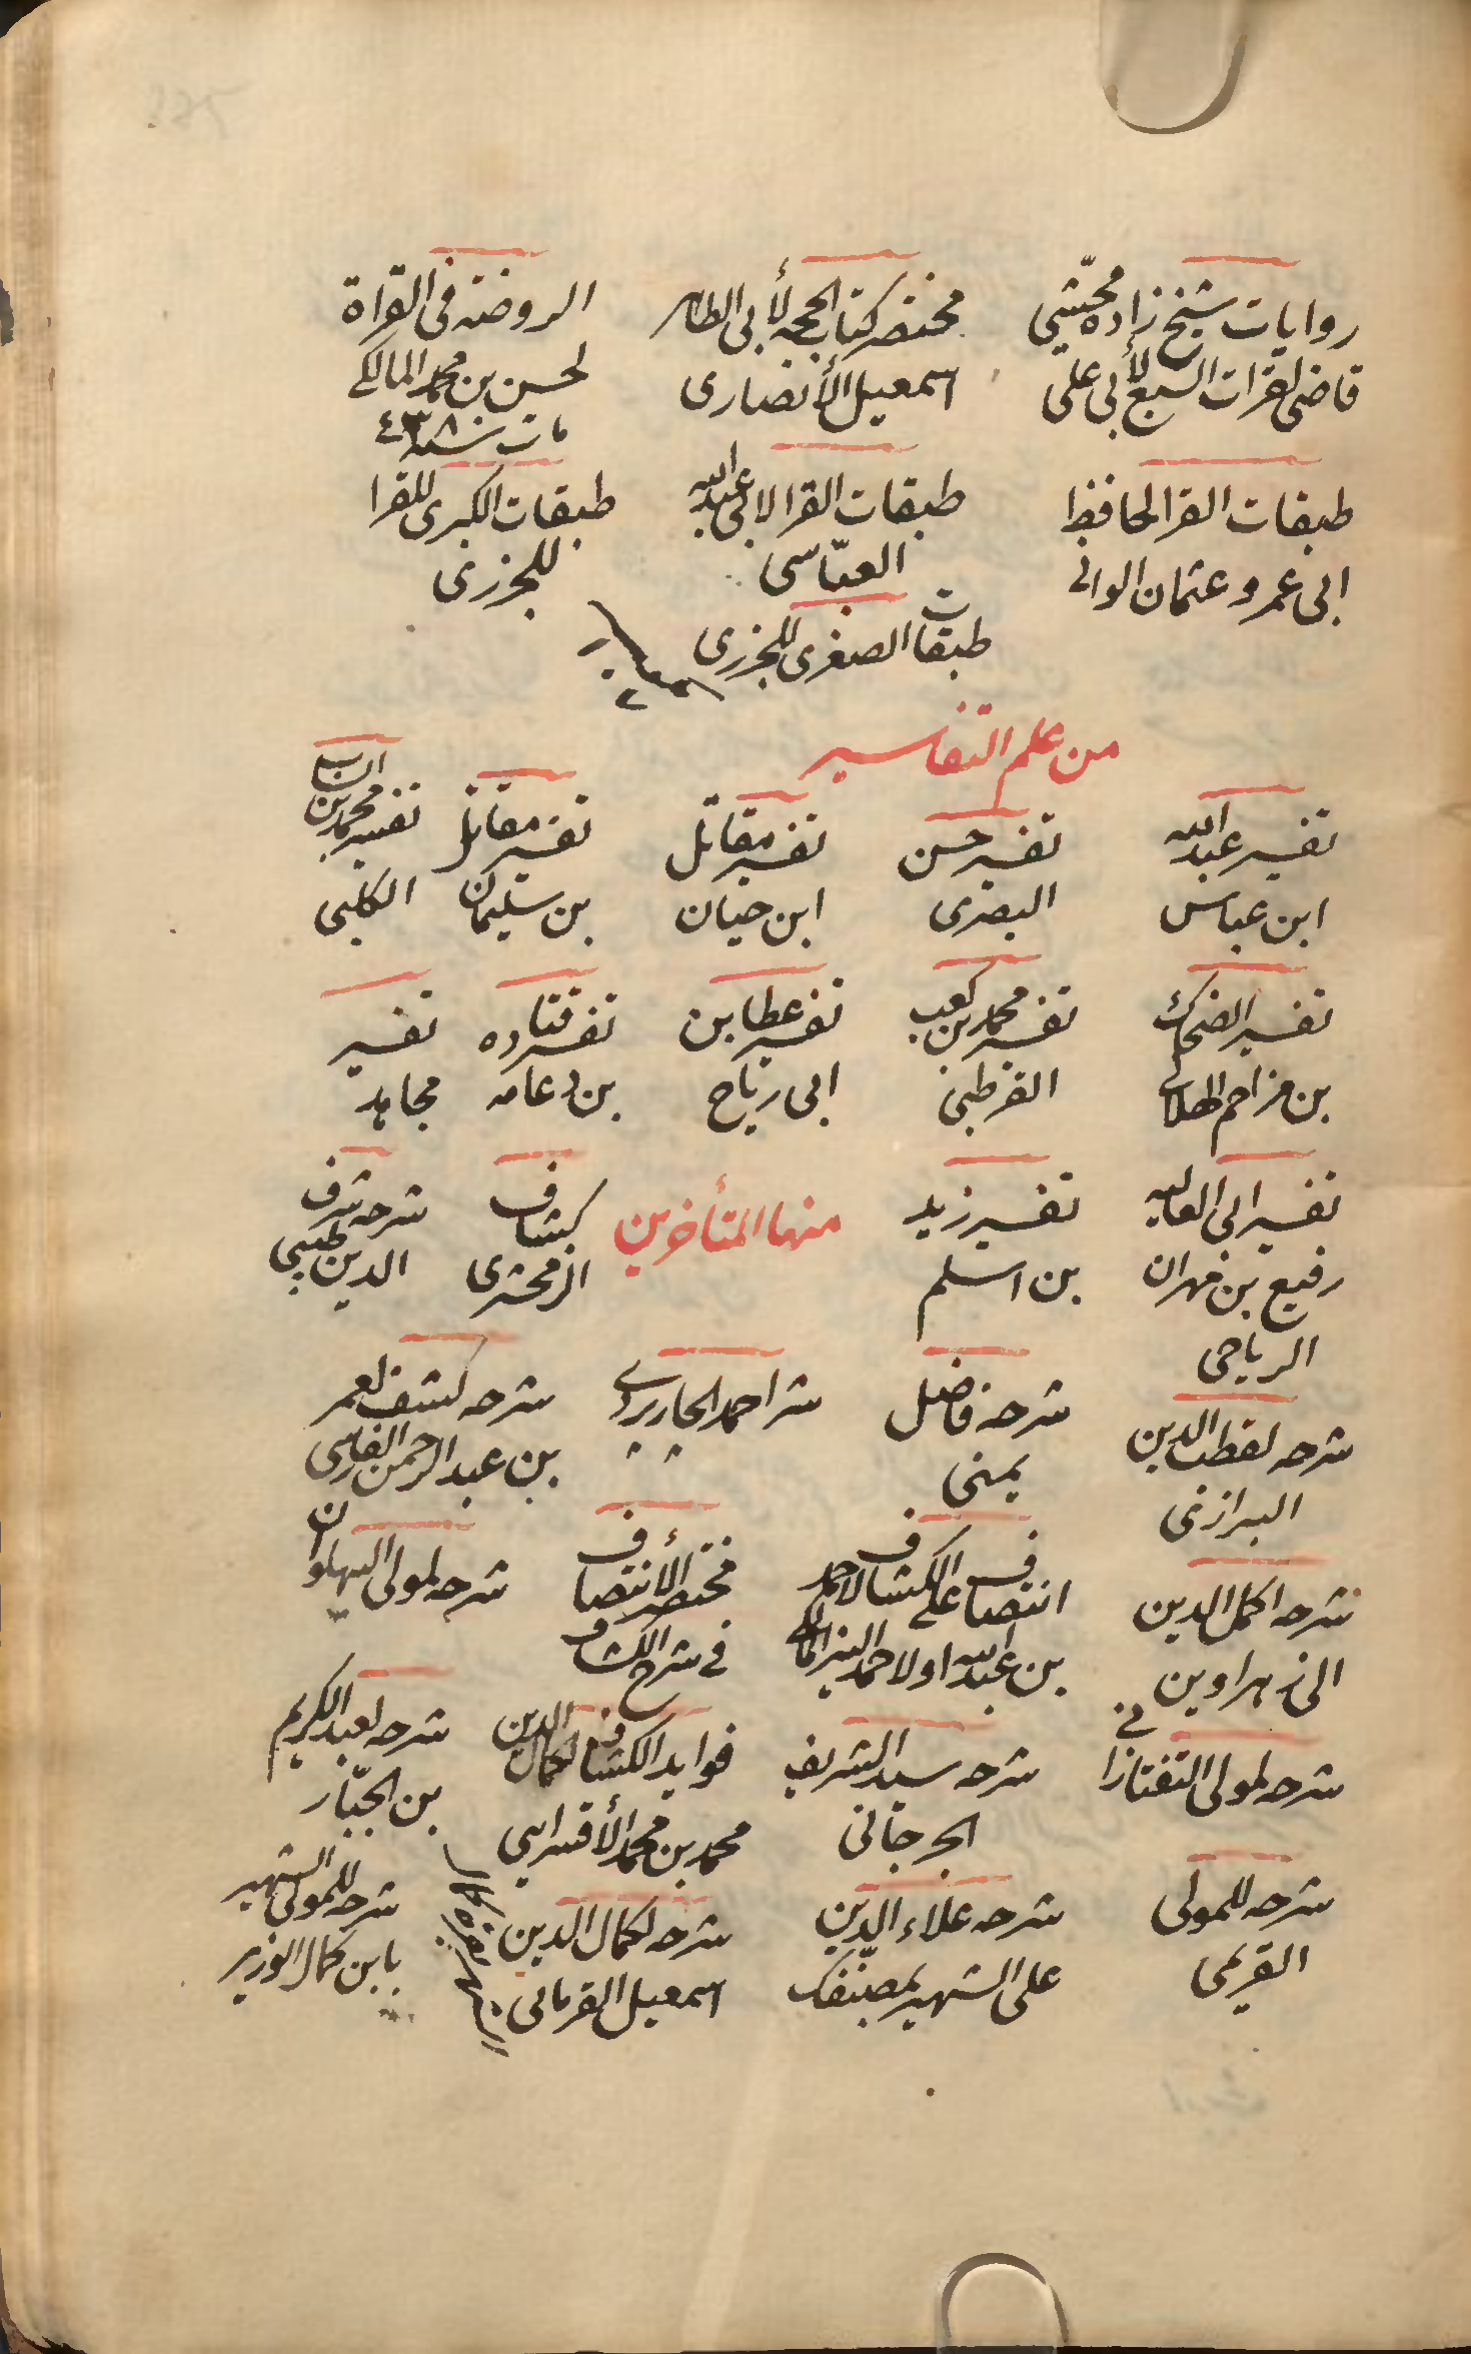 روايات شيخ زاده محشّى
قاضى لقرات السبع لأبى على
مختصر كتاب الحجه لأبى الطاهر
اسمعيل الأنصارى
الروضه فى القراة
لحسن بن محمد المالكى
مات سنه ٤٣٨
طبقات القرا لحافظ
ابى عمرو عثمان الوانى
طبقات القرا لابى عبد الله
العبّاسى
طبقات الكبرى للقرا
للجزرى
طبقات الصغرى للجزرى
من علم التفاسير
تفسير عبد الله
ابن عباس
تفسير حسن
البصرى
تفسير مقاتل
ابن حيان
تفسير مقاتل
بن سليمان
تفسير محمد بن السائب
الكلبى
تفسير الضحاك
بن مزاحم الهلالى
تفسير محمد بن كعب
القرطبى
تفسير عطا بن
ابى رباح
تفسير قتاده
بن دعامه
تفسير
مجاهد
تفسير ابى العاليه
رفيع بن مهران
الرياحى
تفسير زيد
بن اسلم
منها المتأخرين
كشاف
الزمخشرى
شرحه شرف
الدين طيبى
شرحه لقطب الدين
البرازى
شرحه فاضل
يمنى
شر احمد الجاربردى
شرحه كشف لعمر
بن عبد الرحمن الفارسى
شرحه اكمل الدين
الى زهراوين
انتصاف على الكشاف لاحمد
بن عبد الله اولاحمد المنير المالكى
مختصر الأنتصاف
فى شرح الكشاف
شرحه لمولى البهلوان
شرحه لمولى التفتازانى
شرحه سيد الشريف
الجرجانى
فوايد الكشاف لكمال الدين
محمد بن محمد الأقسرايى
شرحه لعبد الكريم
بن الجبّار
شرحه للمولى
القريمى
شرحه علاء الدين
على الشهير بمصنّفك
شرحه لكمال الدين
اسمعيل القرمانى
شرحه للمولى الشهير
بابن كمال الوزير